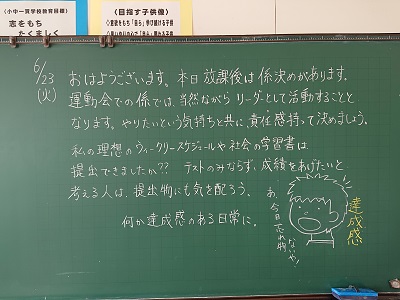 〈小中一貫学校教育目標〉
志をもち
たくましく
〈目指す子供像〉
6/23
(火)
おはようございます。本日放課後は係決めがあります。
運動会での係では、当然ながらリーダーとして活動することと
なります。やりたいという気持ちと共に、責任感持って決めましょう。
私の理想のウィークリースケジュールや社会の学習書は
提出できましたか?? テストのみならず、成績をあげたいと
考える人は、提出物にも気を配ろう。
何か達成感のある日常に。
達成感
あ、今日忘れ物
なしや!